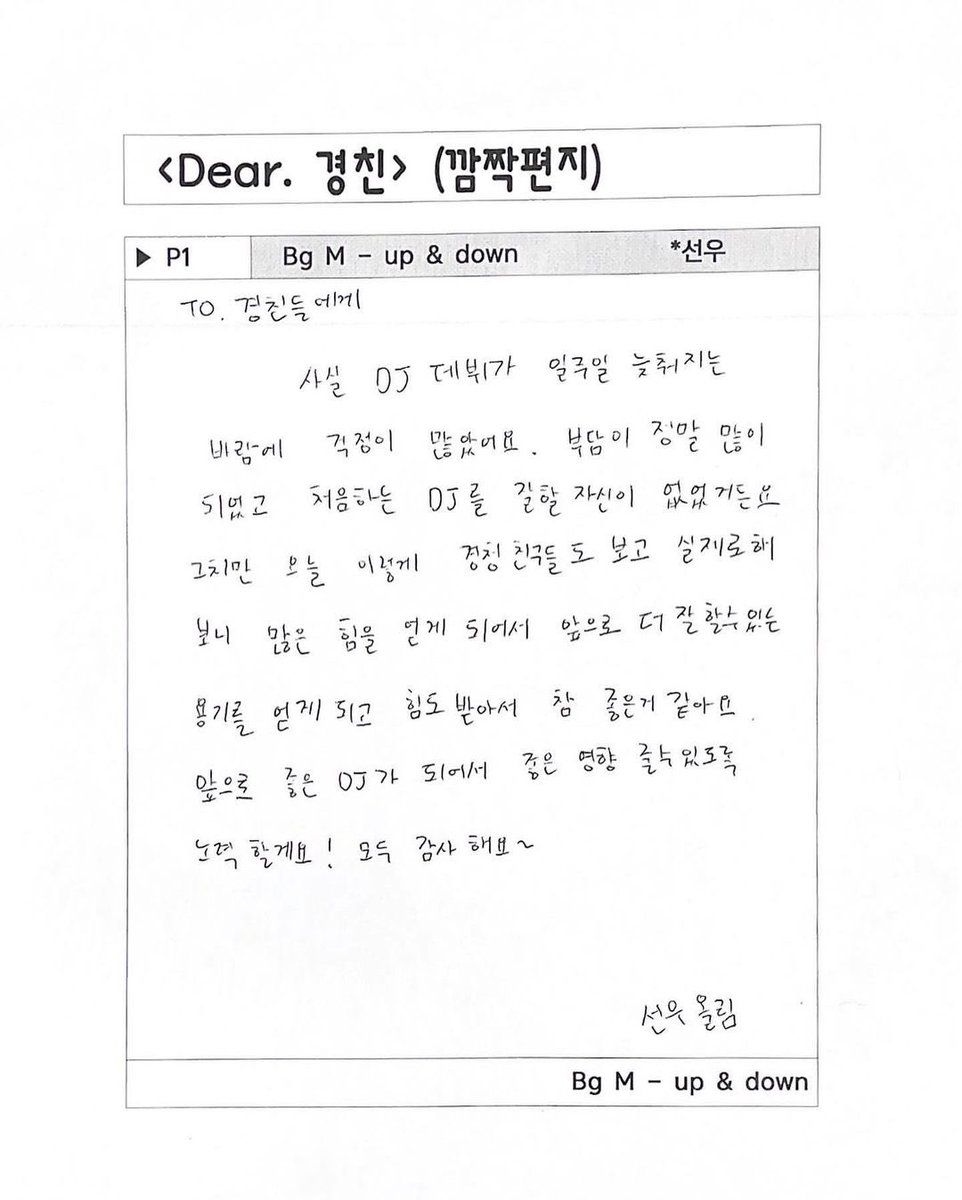 <Dear. 경친> (깜짝편지)
▶ P1 Bg M - up & down *선우
TO. 경친들에게
사실 DJ 데뷔가 일주일 늦춰지는
바람에 걱정이 많았어요. 부담이 정말 많이
되었고 처음하는 DJ를 잘할 자신이 없었거든요
그치만 오늘 이렇게 경청 친구들도 보고 실제로해
보니 많은 힘을 얻게 되어서 앞으로 더 잘할수있는
용기를 얻게 되고 힘도 받아서 참 좋은거 같아요.
앞으로 좋은 DJ가 되어서 좋은 영향 줄수있도록
노력 할게요! 모두 감사해요~
선우 올림
Bg M - up & down